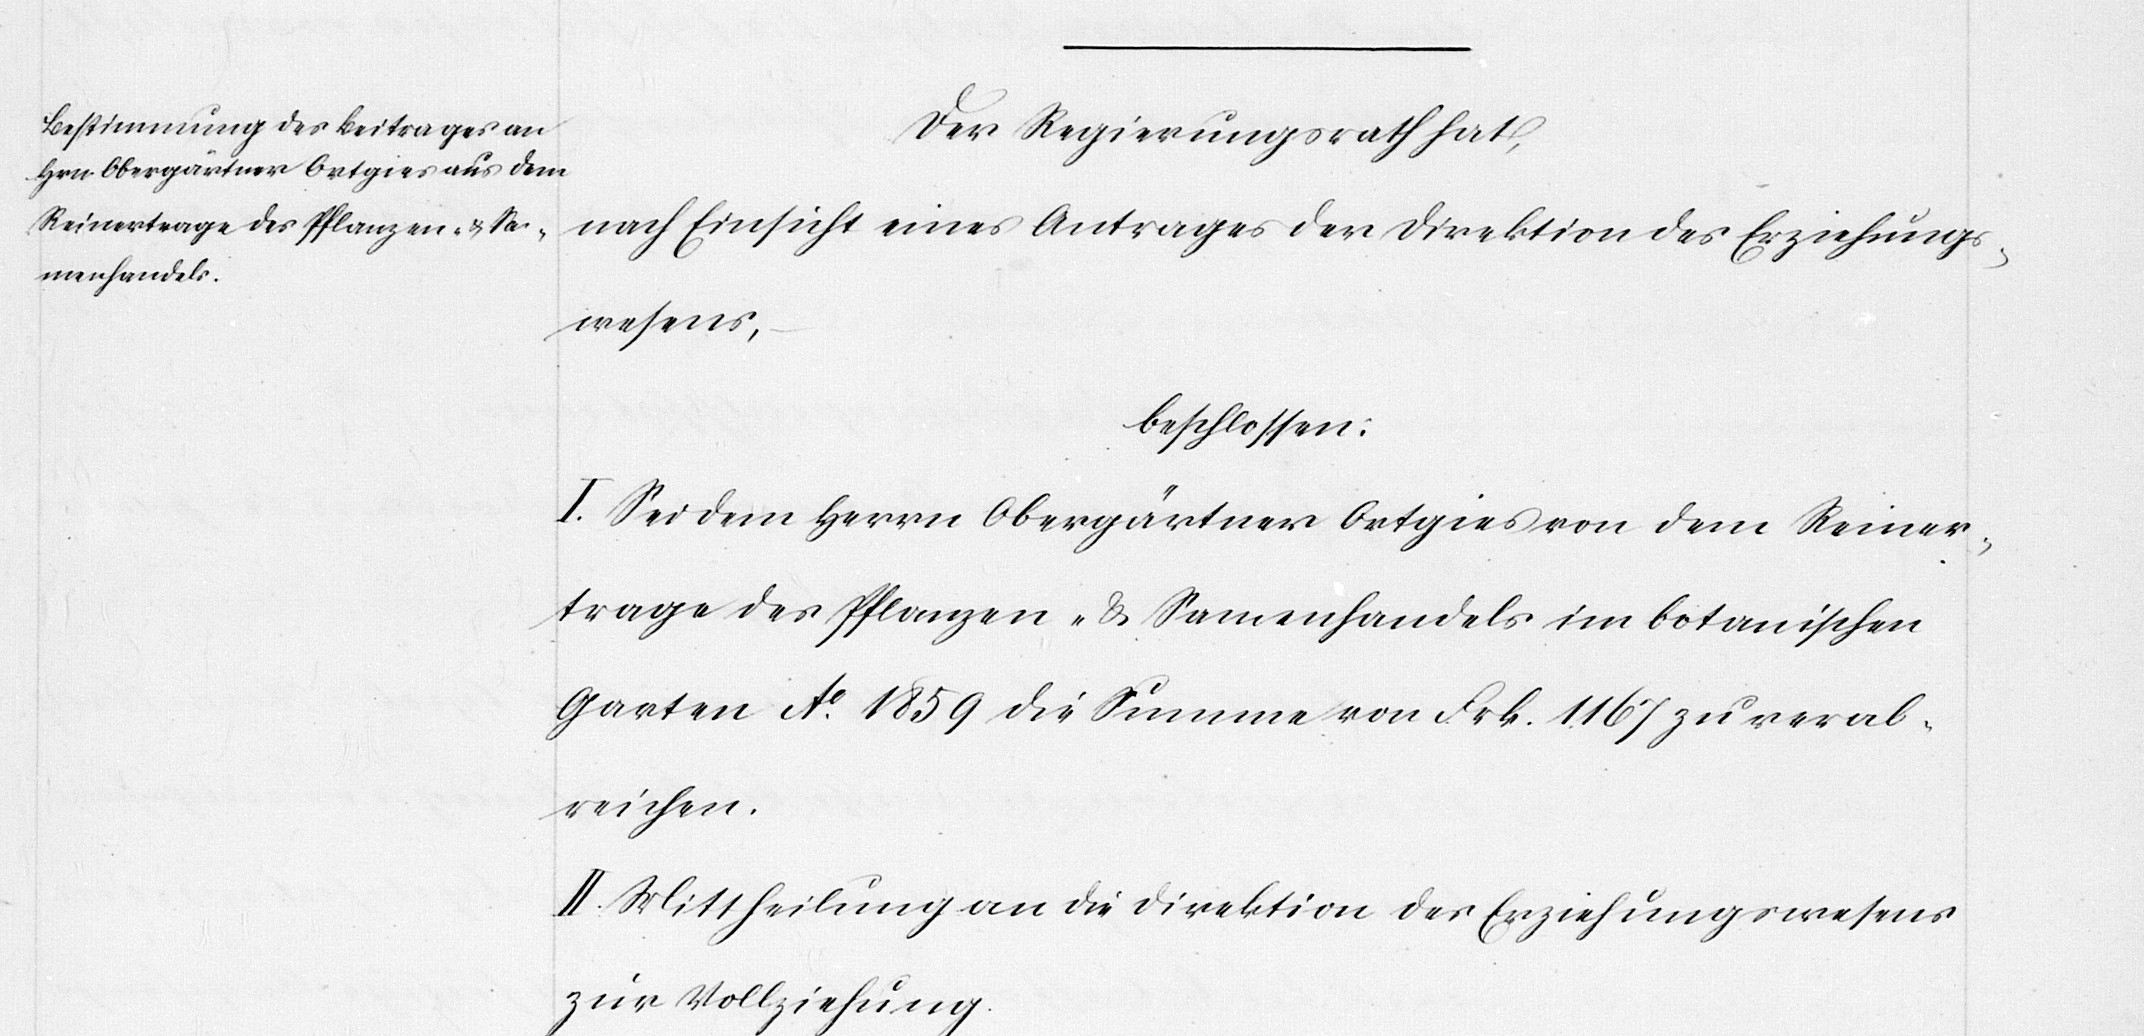 Bestimmung des Beitrages an
Hrn. Obergärtner Ortgies aus dem
Reinertrage des Pflanzen- & Sa-
menhandels.
Der Regierungsrath hat,
nach Einsicht eines Antrages der Direktion des Erziehungs-
wesens,
beschlossen:
I. Sei dem Herrn Obergärtner Ortgies von dem Reiner-
trage des Pflanzen- & Samenhandels im botanischen
Garten Aº. 1859 die Summe von Frk. 1167 zu verab-
reichen.
II. Mittheilung an die Direktion des Erziehungswesens
zur Vollziehung.